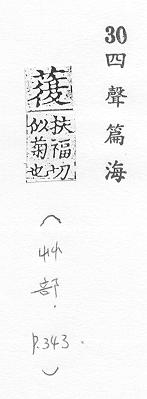 30四聲篇海
蕧
扶福切
似菊也
(艸部. P.343.)